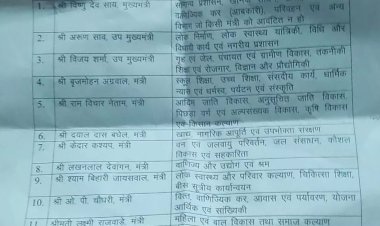 1. श्री विष्णु देव साय, मुख्यमंत्री
सामान्य प्रशासन, खनिज
वाणिज्यिक कर (आबकारी), परिवहन एवं अन्य
विभाग जो किसी मंत्री को आवंटित न हो
2. श्री अरूण साव, उप मुख्यमंत्री
लोक निर्माण, लोक स्वास्थ्य यांत्रिकी, विधि और
विधायी कार्य एवं नगरीय प्रशासन
3. श्री विजय शर्मा, उप मुख्यमंत्री
गृह एवं जेल, पंचायत एवं ग्रामीण विकास, तकनीकी
शिक्षा एवं रोजगार, विज्ञान और प्रौद्योगिकी
4. श्री बृजमोहन अग्रवाल, मंत्री
स्कूल शिक्षा, उच्च शिक्षा, संसदीय कार्य, धार्मिक
न्यास एवं धर्मस्व, पर्यटन एवं संस्कृति
5. श्री राम विचार नेताम, मंत्री
आदिम जाति विकास, अनुसूचित जाति विकास,
पिछड़ा वर्ग एवं अल्पसंख्यक विकास, कृषि विकास
एवं किसान कल्याण
6. श्री दयाल दास बघेल, मंत्री
खाद्य, नागरिक आपूर्ति एवं उपभोक्ता संरक्षण
7. श्री केदार कश्यप, मंत्री
वन एवं जलवायु परिवर्तन, जल संसाधन, कौशल
विकास एवं सहकारिता
8. श्री लखनलाल देवांगन, मंत्री
वाणिज्य और उद्योग एवं श्रम
9. श्री श्याम बिहारी जायसवाल, मंत्री
लोक स्वास्थ्य और परिवार कल्याण, चिकित्सा शिक्षा,
बीस सूत्रीय कार्यान्वयन
10. श्री ओ. पी. चौधरी, मंत्री
वित्त, वाणिज्यिक कर, आवास एवं पर्यावरण, योजना
आर्थिक एवं सांख्यिकी
11. श्रीमती लक्ष्मी राजवाड़े, मंत्री
महिला एवं बाल विकास तथा समाज कल्याण